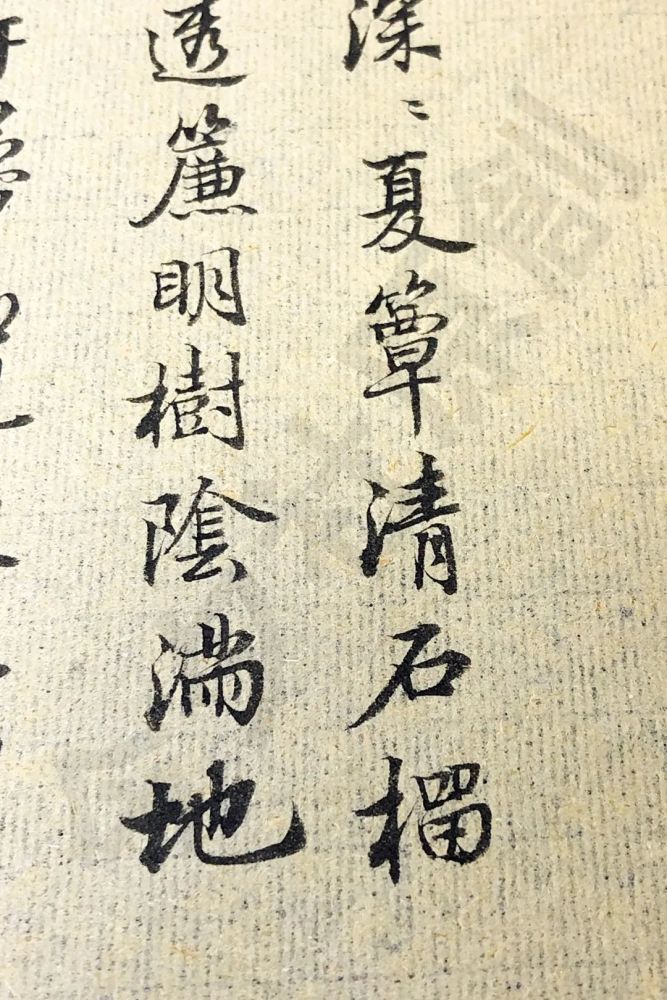 深〻夏簟清石榴
透簾明樹陰滿地